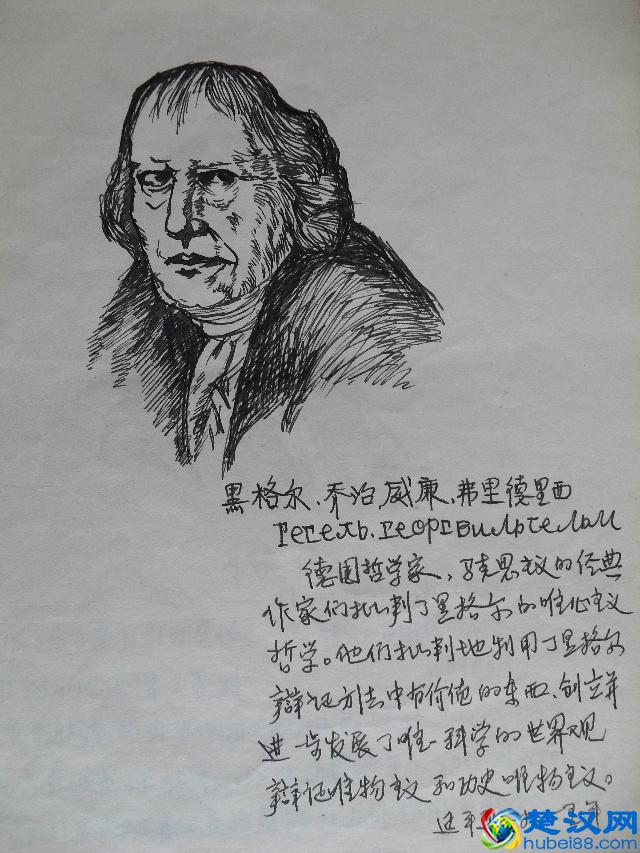 黑格尔、乔治,威廉、弗里德里西
Гегель.георгвильгельм
德国哲学家，马克思主义的经典
作家们批判了黑格尔的唯心主义
哲学。他们批判地利用了黑格尔
辩证方法中有价值的东西、创立并
进一步发展了唯一科学的世界观
辩证唯物主义和历史唯物主义。
楚汉网
hubei88.com